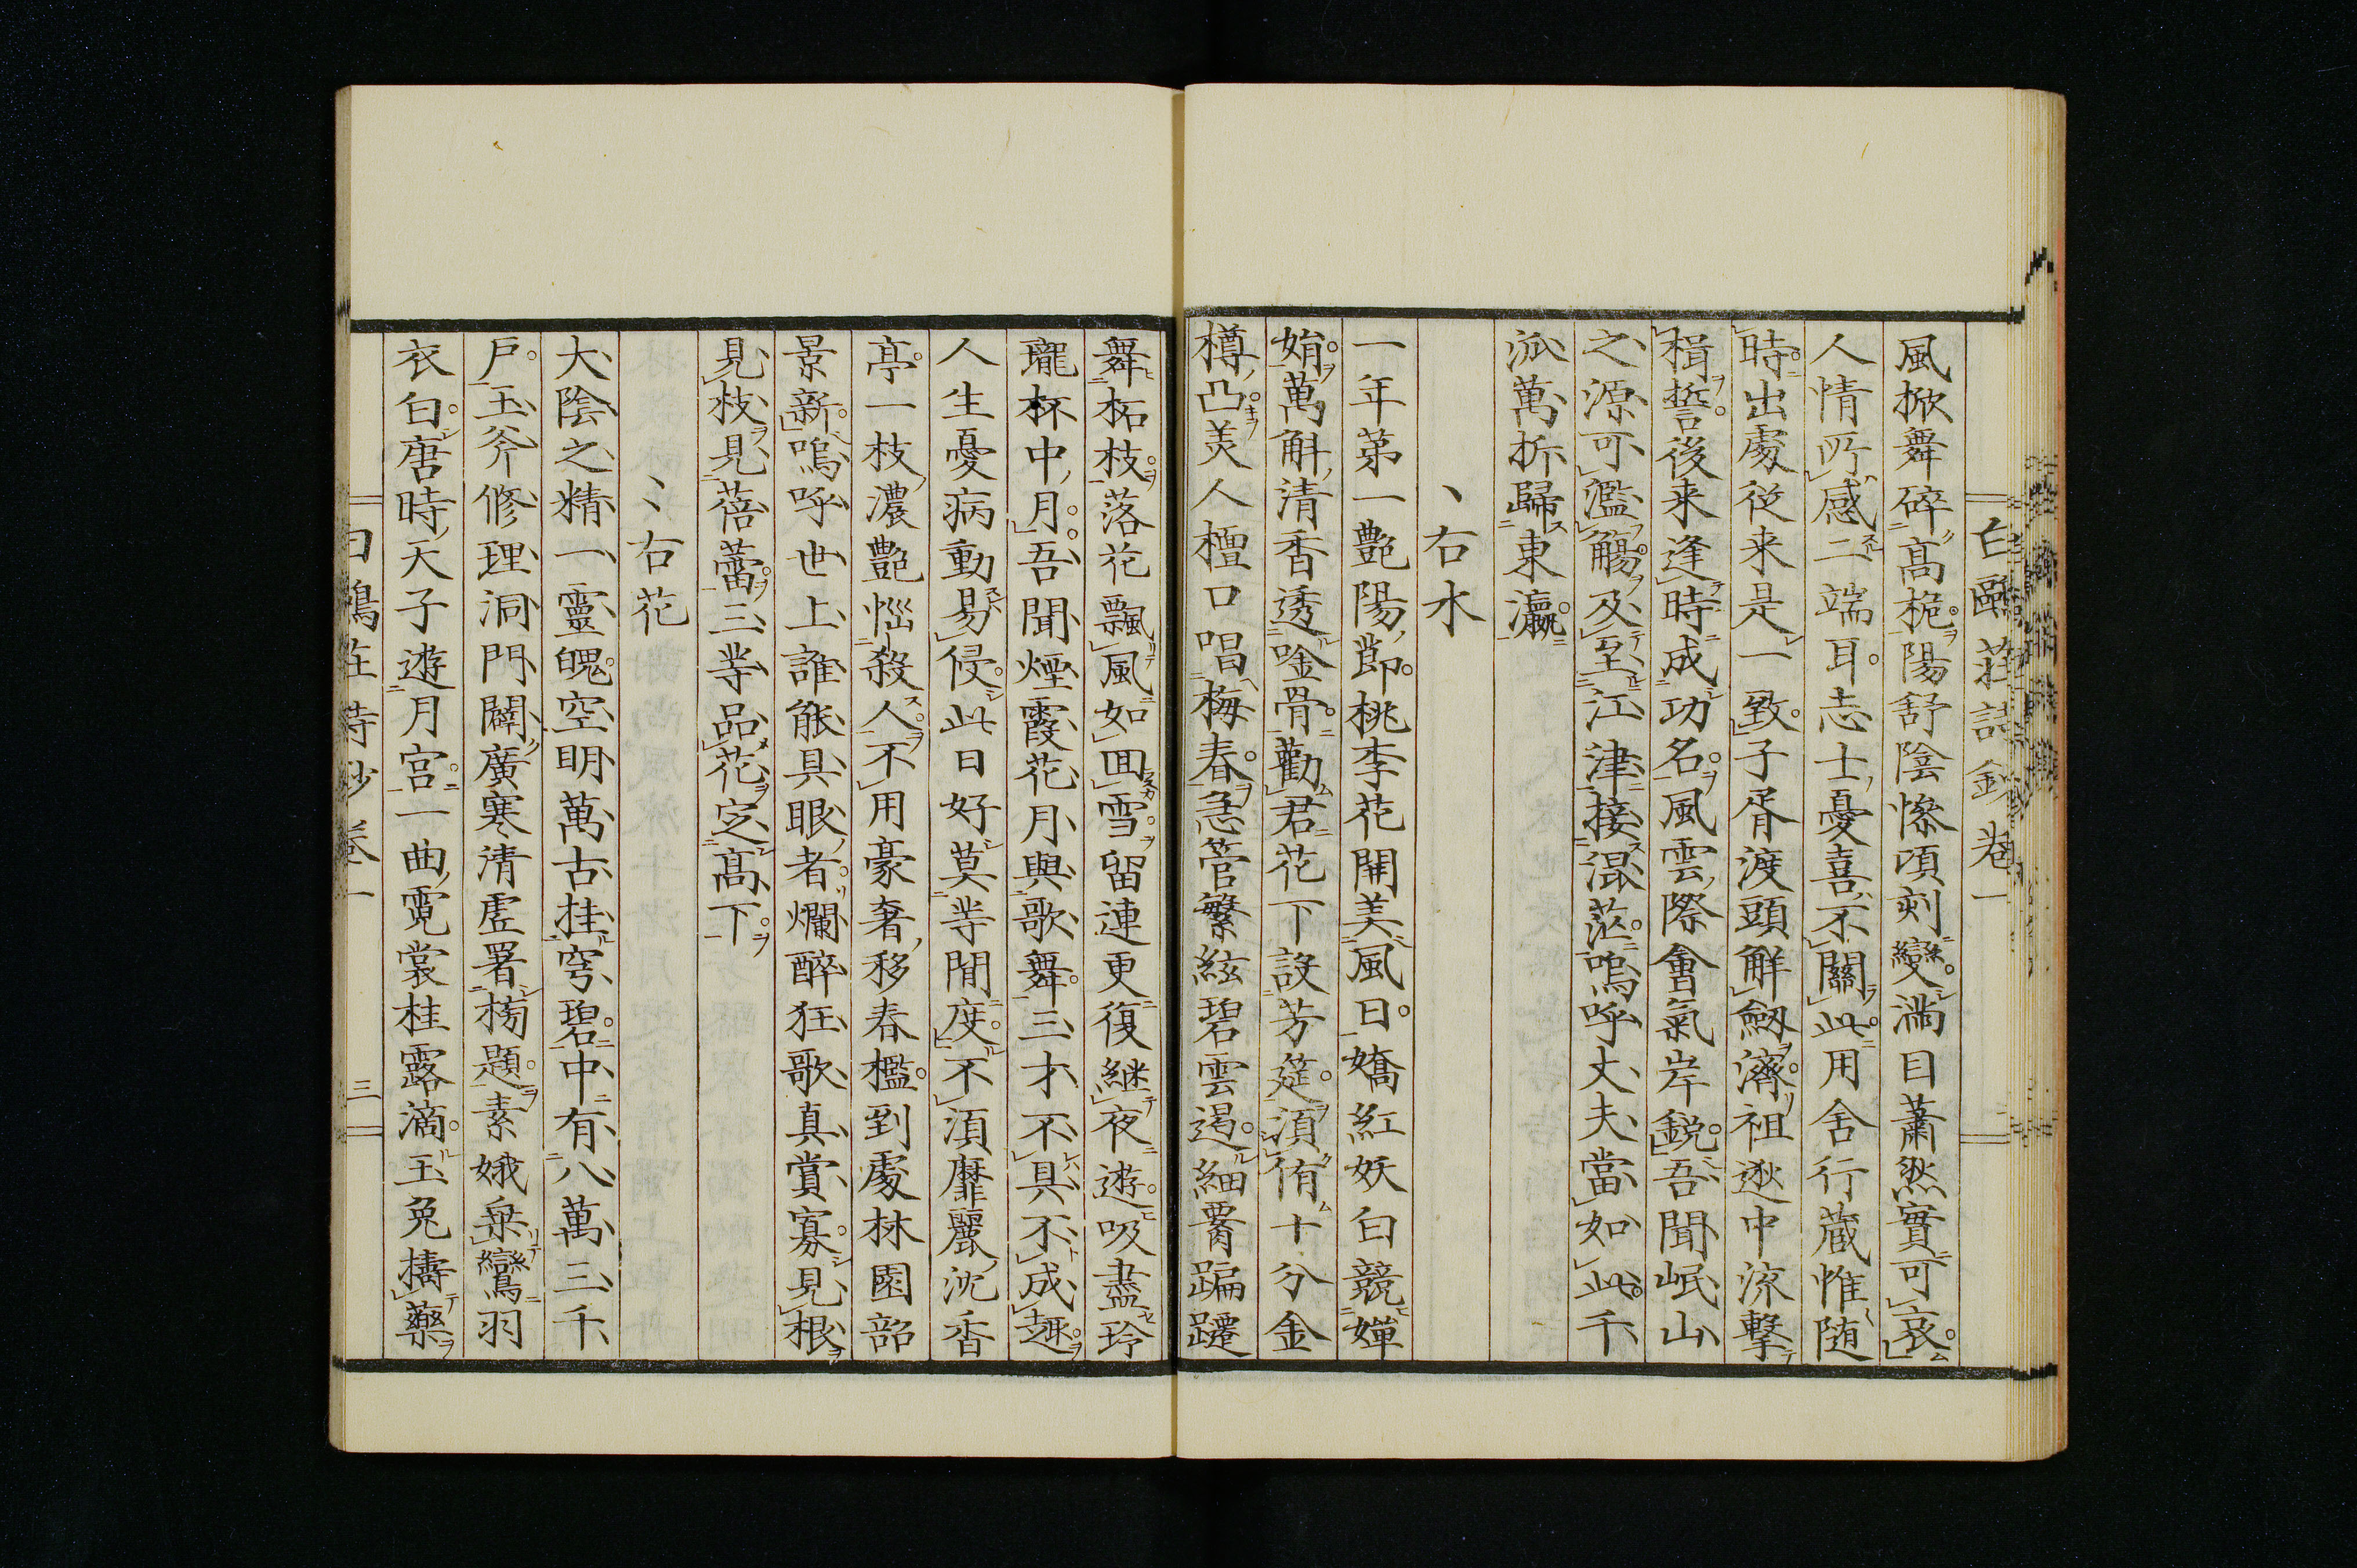 白鷗莊詩鈔卷一
風掀舞碎高桅陽舒陰慘頃刻變滿目蕭然實可哀
人情所感二端耳志士憂喜不關此用舍行藏惟随
時出處従来是一致子胥渡頭解劔濟祖逖中流擊
楫誓後来逢時成功名風雲際會氣岸鋭吾聞岷山
之源可濫觴及至江津接混茫嗚呼丈夫當如此千
派萬折歸東瀛
右水
一年第一艷陽節桃李花開美風日嬌紅妖白競嬋
娟萬斛清香透唫骨勸君花下設芳筵須侑十分金
樽凸美人檀口唱梅春急管繁絃碧雲遏細腰蹁躚
舞柘枝落花飄風如回雪留連更復継夜遊吸盡玲
瓏杯中月吾聞煙霞花月與歌舞三才不具不成趣
人生憂病動易侵此日好莫等閒度不須靡麗沈香
亭一枝濃艷惱殺人不用豪奢移春檻到處林園韶
景新嗚呼世上誰能具眼者爛醉狂歌真賞寡見根
見枝見蓓蕾三等品花定高下
右花
大陰之精一靈魄空明萬古挂穹碧中有八萬三千
戶玉斧修理洞門闢廣寒清虚署榜題素娥乗鸞羽
衣白唐時天子遊月宮一曲霓裳桂露滴玉兔擣藥
白鷗莊詩鈔卷一 三